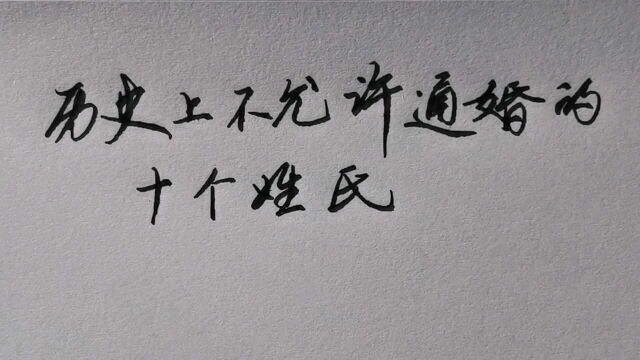 历史上不允许通婚的
十个姓氏